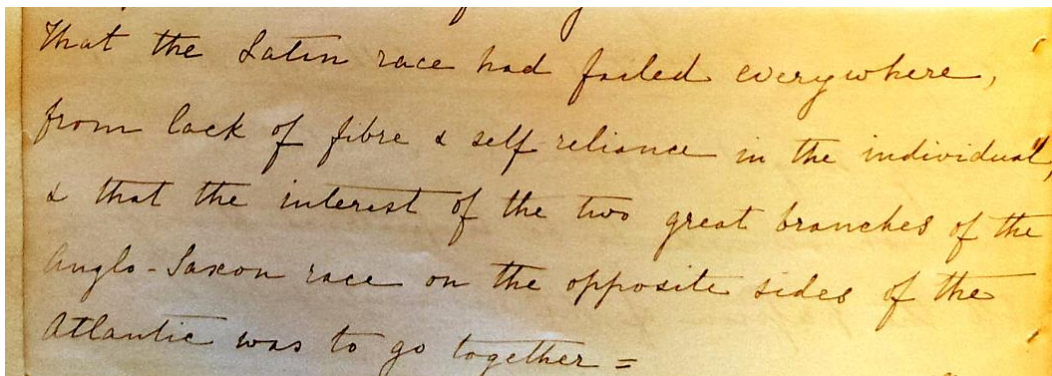 That the Latin race had failed everywhere,
from lack of fibre & self reliance in the individual",
& that the interest of the two great branches of the
Anglo-Saxon race on the opposite sides of the
Atlantic was to go together =